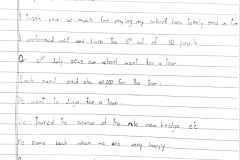 I thank you so much for paying my school fees lovely and on time
I performed well and I was the 5th out of 50 pupils
On 21st July, 2023 our school went for a tour
Each pupil paid shs 40,000 for the tour.
We went to Jinja for a tour.
We toured the source of the nile new bridge etc
We came back when we are very happy.